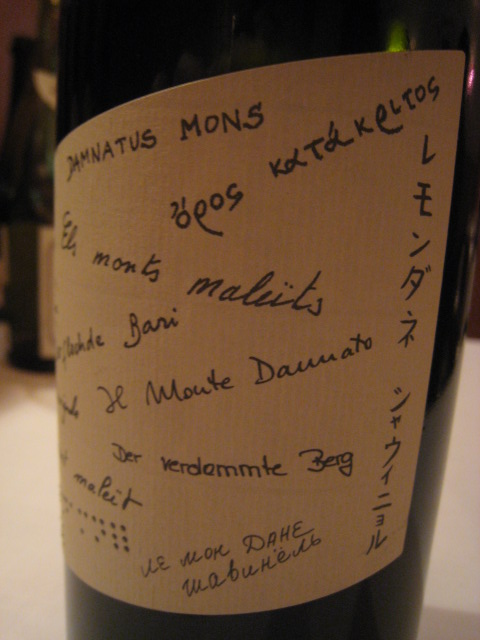 DAMNATUS MONS
ὄρος κατάκριτος
Els monts maleïts
Bari
Il Monte Dannato
Der verdammte Berg
maleït
ле мон ДАНЕ
шавинёль
レモンダネ シャヴィニョル